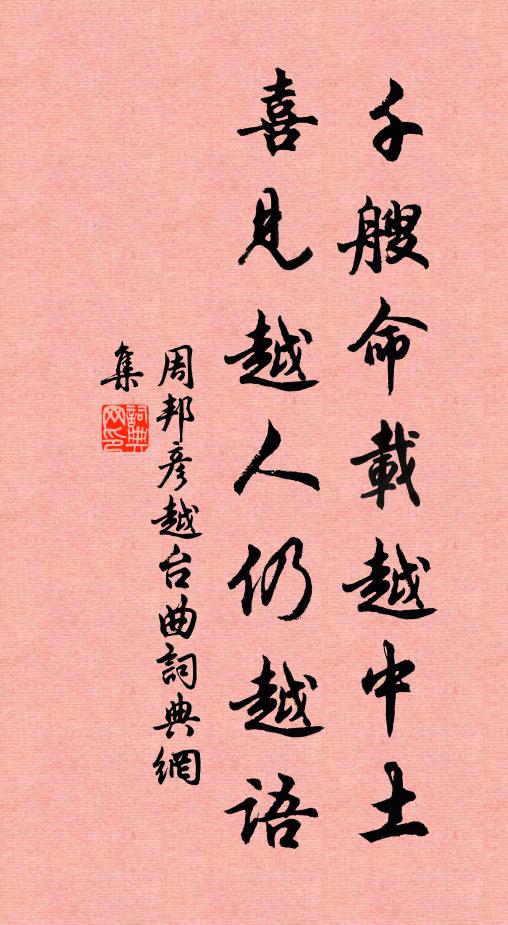 千艘命載越中土
喜見越人仍越語
周邦彦越台曲詞典網
集
詞典網印